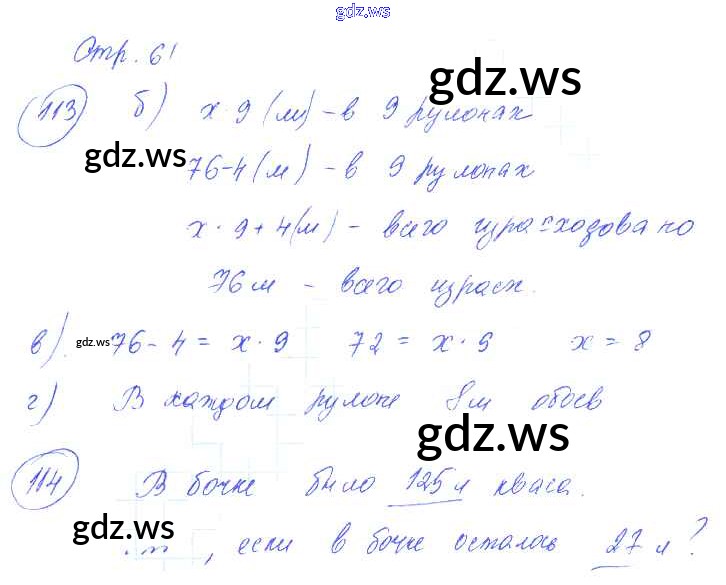 gdz.ws
Стр. 61
gdz.ws
113 б) x·9 (м) - в 9 рулонах
gdz.ws
76-4 (м) - в 9 рулонах
x·9+4 (м) - всего израсходовано
76 м - всего израсх.
в). gdz.ws 76-4 = x·9 72 = x·9 x = 8
г) В каждом рулоне 8 м обоев
gdz.ws
114 В бочке было 125 л кваса.
gdz.ws
, если в бочке осталось 27 л?